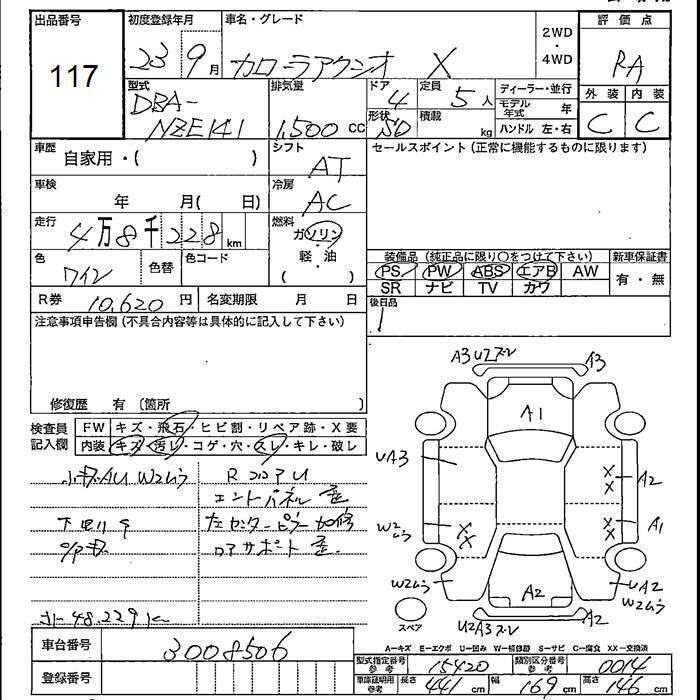 出品番号
117
初度登録年月
23 9月
車名・グレード
カローラアクシオ X
2WD
・
4WD
評価点
RA
外装 内装
C C
型式
DBA-
NZE141
排気量
1,500 cc
ドア
4
形状
SD
定員
5人
積載
kg
ディーラー・並行
モデル年式 年
ハンドル 左・右
車歴
自家用・( )
シフト
AT
セールスポイント (正常に機能するものに限ります)
車検
年 月( 日)
冷房
AC
走行
4万8千228km
燃料
ガソリン
・
軽・油
( )
色
ワイン
色替
色コード
装備品 (純正品に限り○をつけて下さい)
新車保証書
PS PW ABS エアB AW
SR ナビ TV カワ
有・無
R券 10,620円
名変期限 月 日
後日品
注意事項申告欄 (不具合内容等は具体的に記入して下さい)
修復歴 有 (箇所
検査員
記入欄
FW キズ・飛石・ヒビ割・リペア跡・X要
内装 キズ・汚レ・コゲ・穴・スレ・キレ・破レ
小キズAU W2ムラ
R フロアU
エントパネル 歪
下回りサ
左センターピラー 加修
o/pキズ
ロアサポート 歪
48,229K
A3U2ズレ
A3
A1
UA3
A2
W2ムラ
A1
XX
XX
XX
W2ムラ
A2
UA2
W2ムラ
U2A3ズレ
A2
スペア
A-キズ E-エクボ U-凹み W-補修跡 S-サビ C-腐食 XX-交換済
車台番号
3008506
登録番号
型式指定番号
参考
15420
類別区分番号
参考
0014
車庫証明用
参考
長さ 441cm
幅 169cm
高さ 146cm